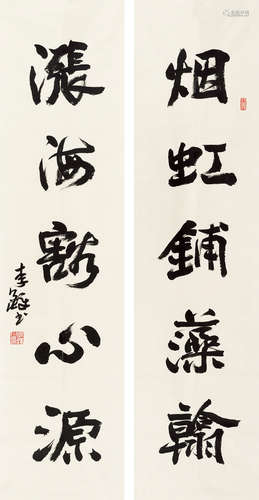 烟虹鋪藻翰
漲海豁心源